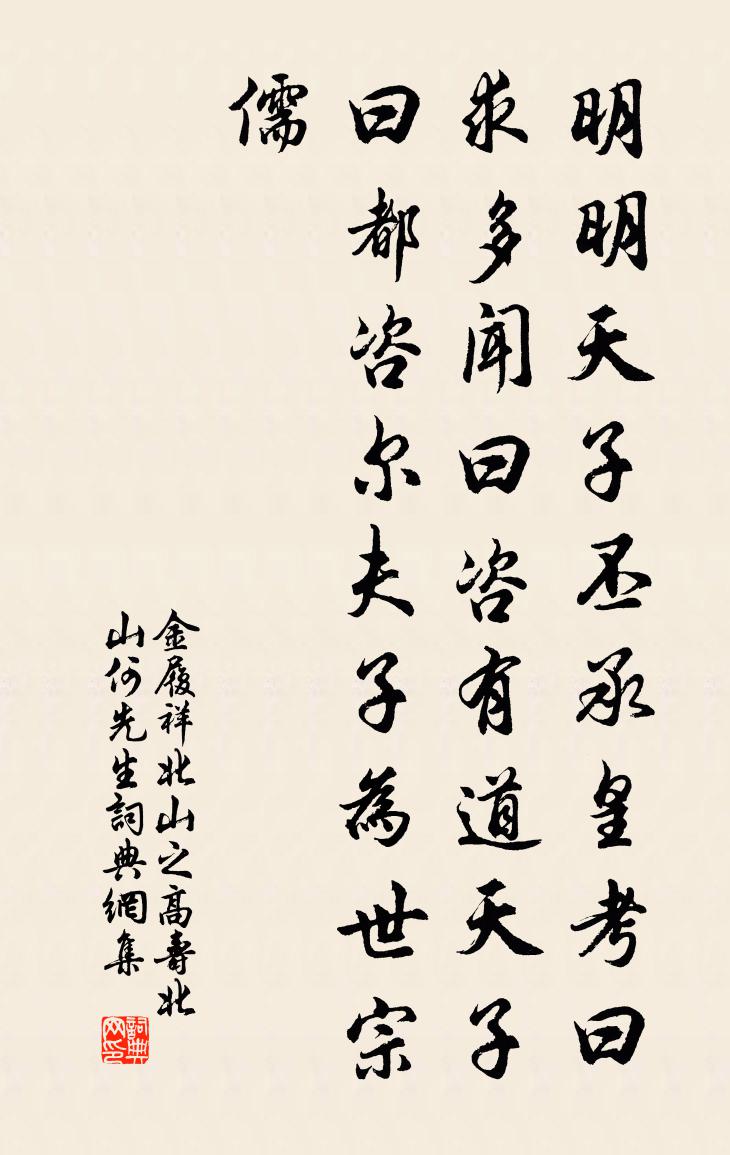 明明天子丕承皇考曰
求多聞曰咨有道天子
曰都咨尔夫子為世宗
儒
金履祥北山之高壽北
山何先生詞典網集
詞典网印